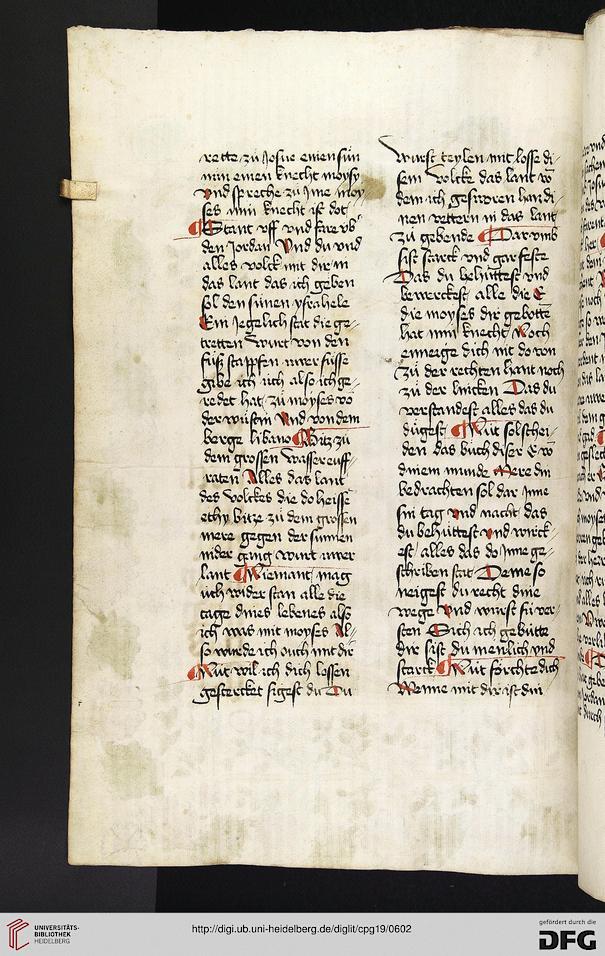 rette zü Josue einen sün
nün einen knecht moysy
Vnd spreche zu Jme moy
ses min knecht ist dot
Stant vff vnd fare vb'
den Jordan Vnd du vnd
alles volck mit dir in
das lant das ich geben
sol den sünen ysrahele
Ein Jegelich stat die ge-
tretten wurt von den
füß stapffen uwer füsse
gibe ich üch also ich ge-
redet hat zü moyses vō
der wüstin Vnd von dem
berge libano Bitz zü
dem grossen wasser euff-
raten Alles das lant
des volckes die do heissē
ethy bitze zü dem grossen
mere gegen der sunnen
nider gang wurt uwer
lant Niemant mag
üch wider stan alle die
tage dines lebenes also
ich was mit moyses Al-
so wurde ich ouch mit dir
Nüt wil ich dich lossen
gestercket sigest du Du
wurst teylen mit losse di-
sem volcke das lant vō
dem ich gesworen han di-
nen vettern in das lant
zü gebende Darumb
sist starck vnd gar feste
Das du behüttest vnd
bewerckest alle die E
die moyses dir gebottē
hat min knecht Noch
enneige dich nit do von
zü der rechten hant noch
zü der lincken Das du
verstandest alles das du
dügest Nüt sol schei-
den das buch diser E vō
dinem munde Mere din
bedrachten sol dar Jnne
sin tag vnd nacht das
du behüttest vnd wirck-
est alles das do Jnne ge-
schriben stat Denne so
neigest du recht dine
wege Vnd wurst sü ver-
sten Sich ich gebütte
dir sist du menlich vnd
starck Nüt förchte dich
Wenne mit dir ist din
UNIVERSITÄTS-
BIBLIOTHEK
HEIDELBERG
http://digi.ub.uni-heidelberg.de/diglit/cpg19/0602
gefördert durch die
DFG